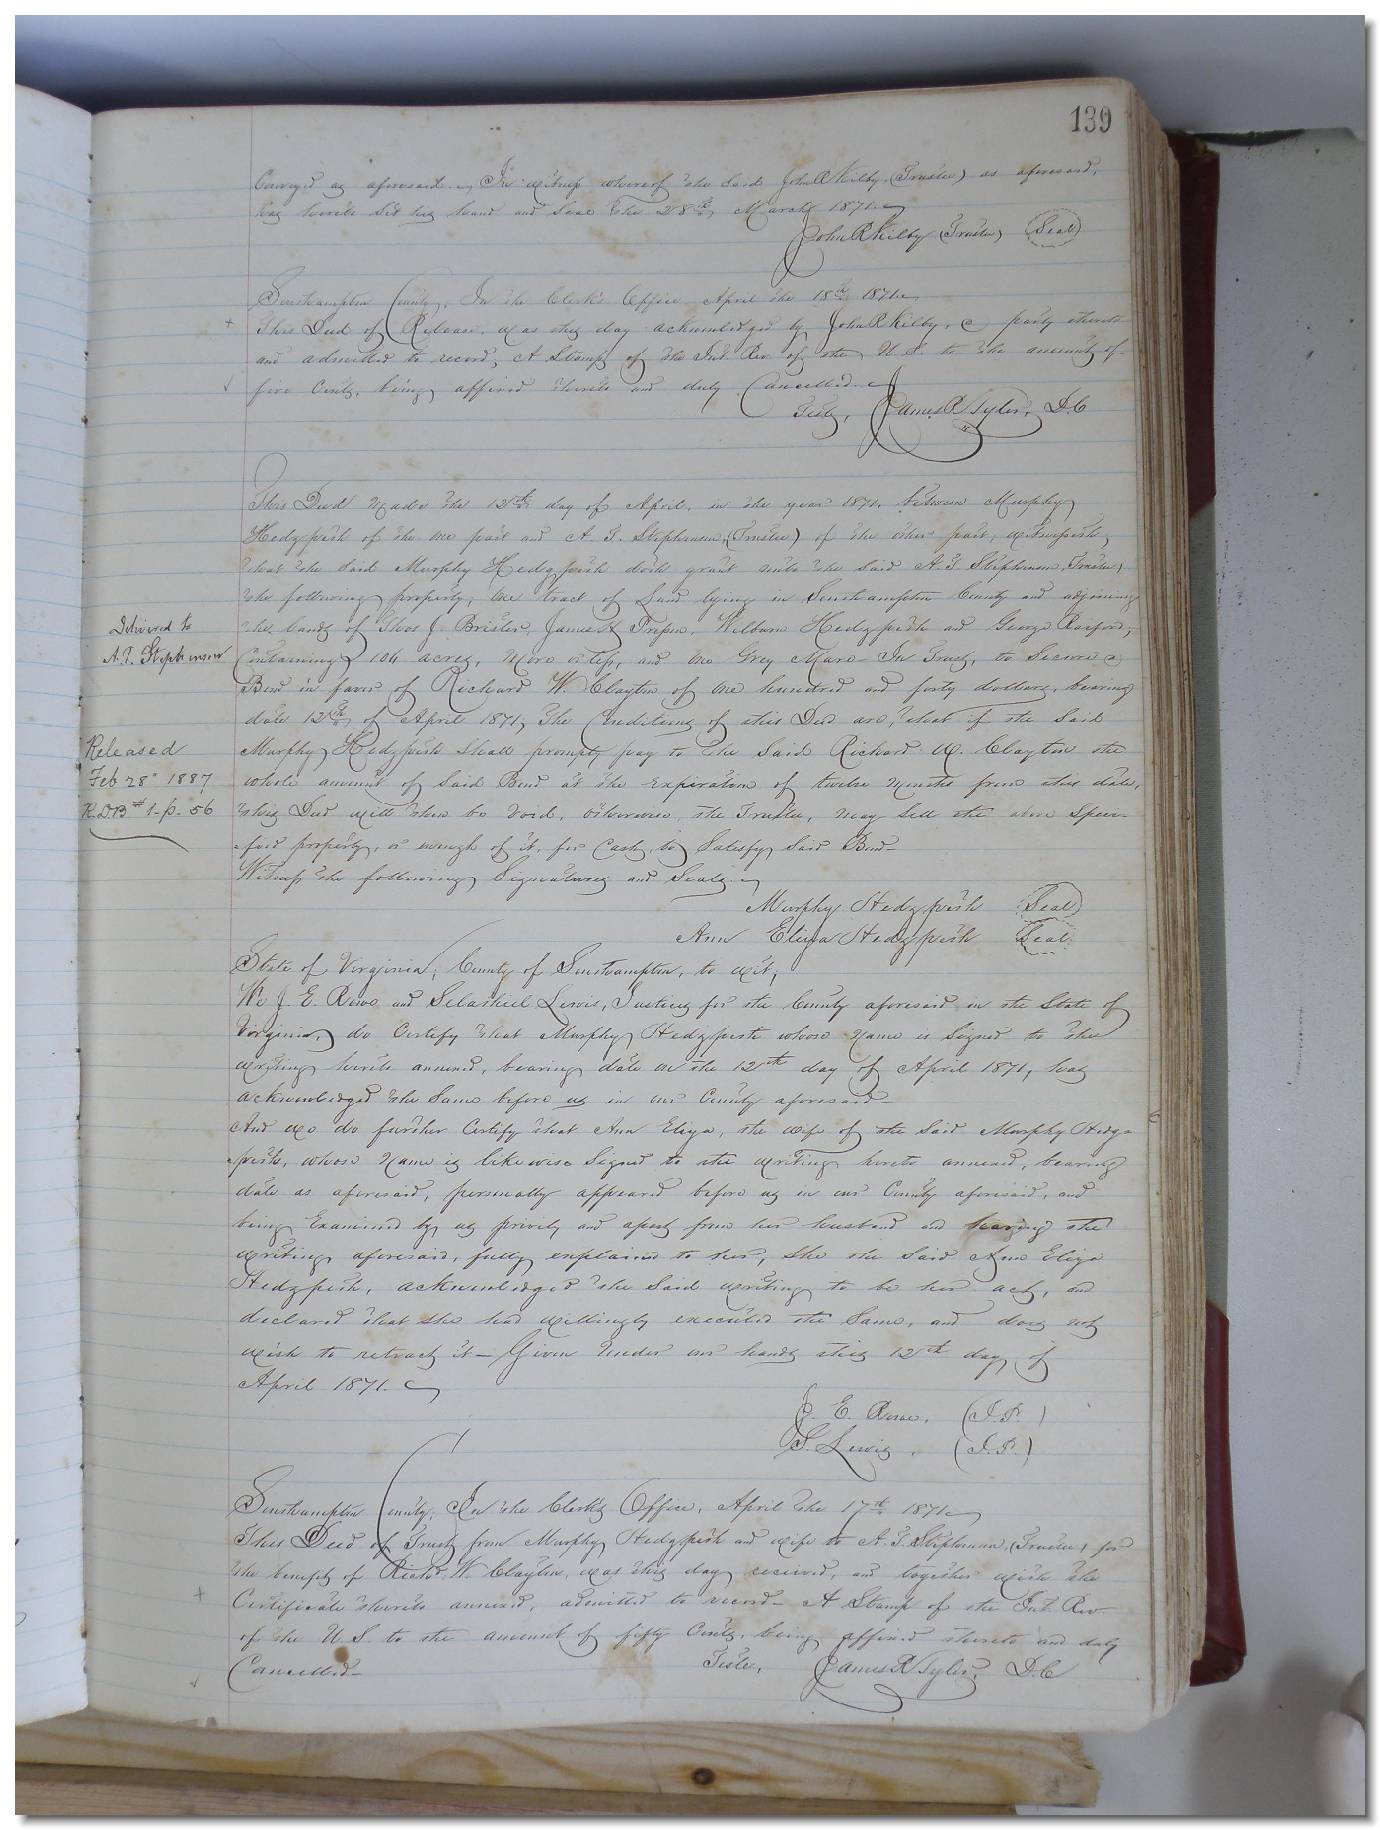 139
Conveyed as aforesaid. In witness whereof the said John R Kilby (Trustee) as aforesaid,
has hereto set his hand and seal the 28th March 1871.
John R Kilby (Trustee) (Seal)
Southampton County, In the Clerk's Office April the 18th 1871.
This Deed of Release, was this day acknowledged by John R Kilby, a party thereto
and admitted to record, A Stamp of the Int. Rev. of the U. S. to the amount of
five Cents, being affixed thereto and duly Cancelled.
Teste, James R Tyler, D.C
This Deed made the 12th day of April, in the year 1871, between Murphy
Hedgpeth of the one part and A. T. Stephenson, (Trustee) of the other part, Witnesseth,
that the said Murphy Hedgpeth doth grant unto the said A. T Stephenson, Trustee,
the following property, One tract of Land lying in Southampton County and adjoining
the lands of Thos J. Brister, James Wilburn Hedgpeth and George Raiford,
Containing 104 acres, more or less, and one Grey Mare - In Trust, to Secure a
Bond in favor of Richard W. Clayton of one hundred and forty dollars, bearing
date 12th of April 1871, The Conditions of this Deed are, that if the Said
Murphy Hedgpeth Shall promptly pay to the Said Richard W. Clayton the
whole amount of Said Bond at the expiration of twelve months from this date,
this Deed will then be Void, otherwise, the Trustee, may Sell the above Speci-
-fied property, or enough of it, for Cash, to Satisfy Said Bond-
Witness the following Signatures and Seals.
Murphy Hedgpeth (Seal)
Ann Eliza Hedgpeth (Seal)
Delivered to
A. T. Stephenson
Released
Feb 28" 1887
R.D.B # 1-p. 56
State of Virginia, County of Southampton, to wit;
We J. E. Rowe and Selathiel Lewis, Justices for the County aforesaid in the State of
Virginia, do Certify that Murphy Hedgpeth whose name is Signed to the
writing hereto annexed, bearing date on the 12th day of April 1871, has
acknowledged the Same before us in our County aforesaid-
And we do further Certify that Ann Eliza, the wife of the Said Murphy Hedg-
-peth, whose name is likewise Signed to the writing hereto annexed, bearing
date as aforesaid, personally appeared before us in our County aforesaid, and
being Examined by us privily and apart from her husband and having the
writing aforesaid, fully explained to her, She the Said Ann Eliza
Hedgpeth, acknowledged the Said writing to be her act, and
declared that She had willingly executed the Same, and does not
wish to retract it- Given under our hands this 12th day of
April 1871.
J. E. Rowe, (J.P.)
S. Lewis, (J.P.)
Southampton County, In the Clerk's Office, April the 17th 1871.
This Deed of Trust from Murphy Hedgpeth and wife to A. T. Stephenson, (Trustee) for
the benefit of Richd W. Clayton, was this day received, and together with the
Certificate thereto annexed, admitted to record- A Stamp of the Int. Rev
of the U. S. to the amount of fifty Cents, being affixed thereto and duly
Cancelled- Teste, James R Tyler, D.C